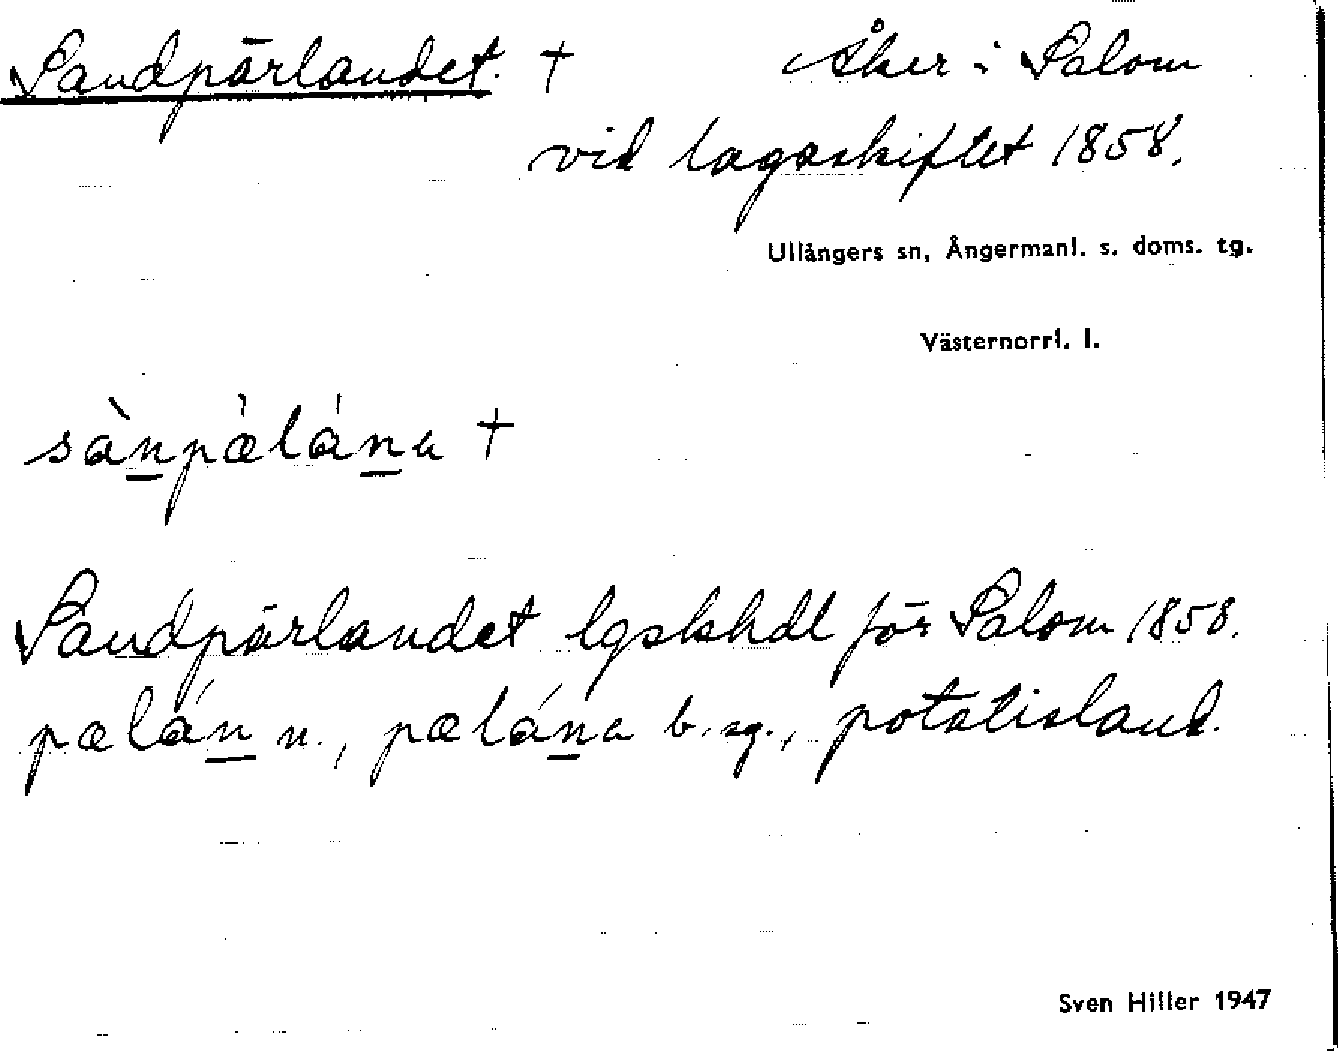 Sandpärlandet. † Åker i Salom
vid lagaskiftet 1858.
Ullångers sn, Ångermanl. s. doms. tg.
Västernorrl. l.
sànpæ̀lána †
Sandpärlandet lgskhdl för Salom 1858.
pælán n., pælána b. sg., potatisland.
Sven Hiller 1947